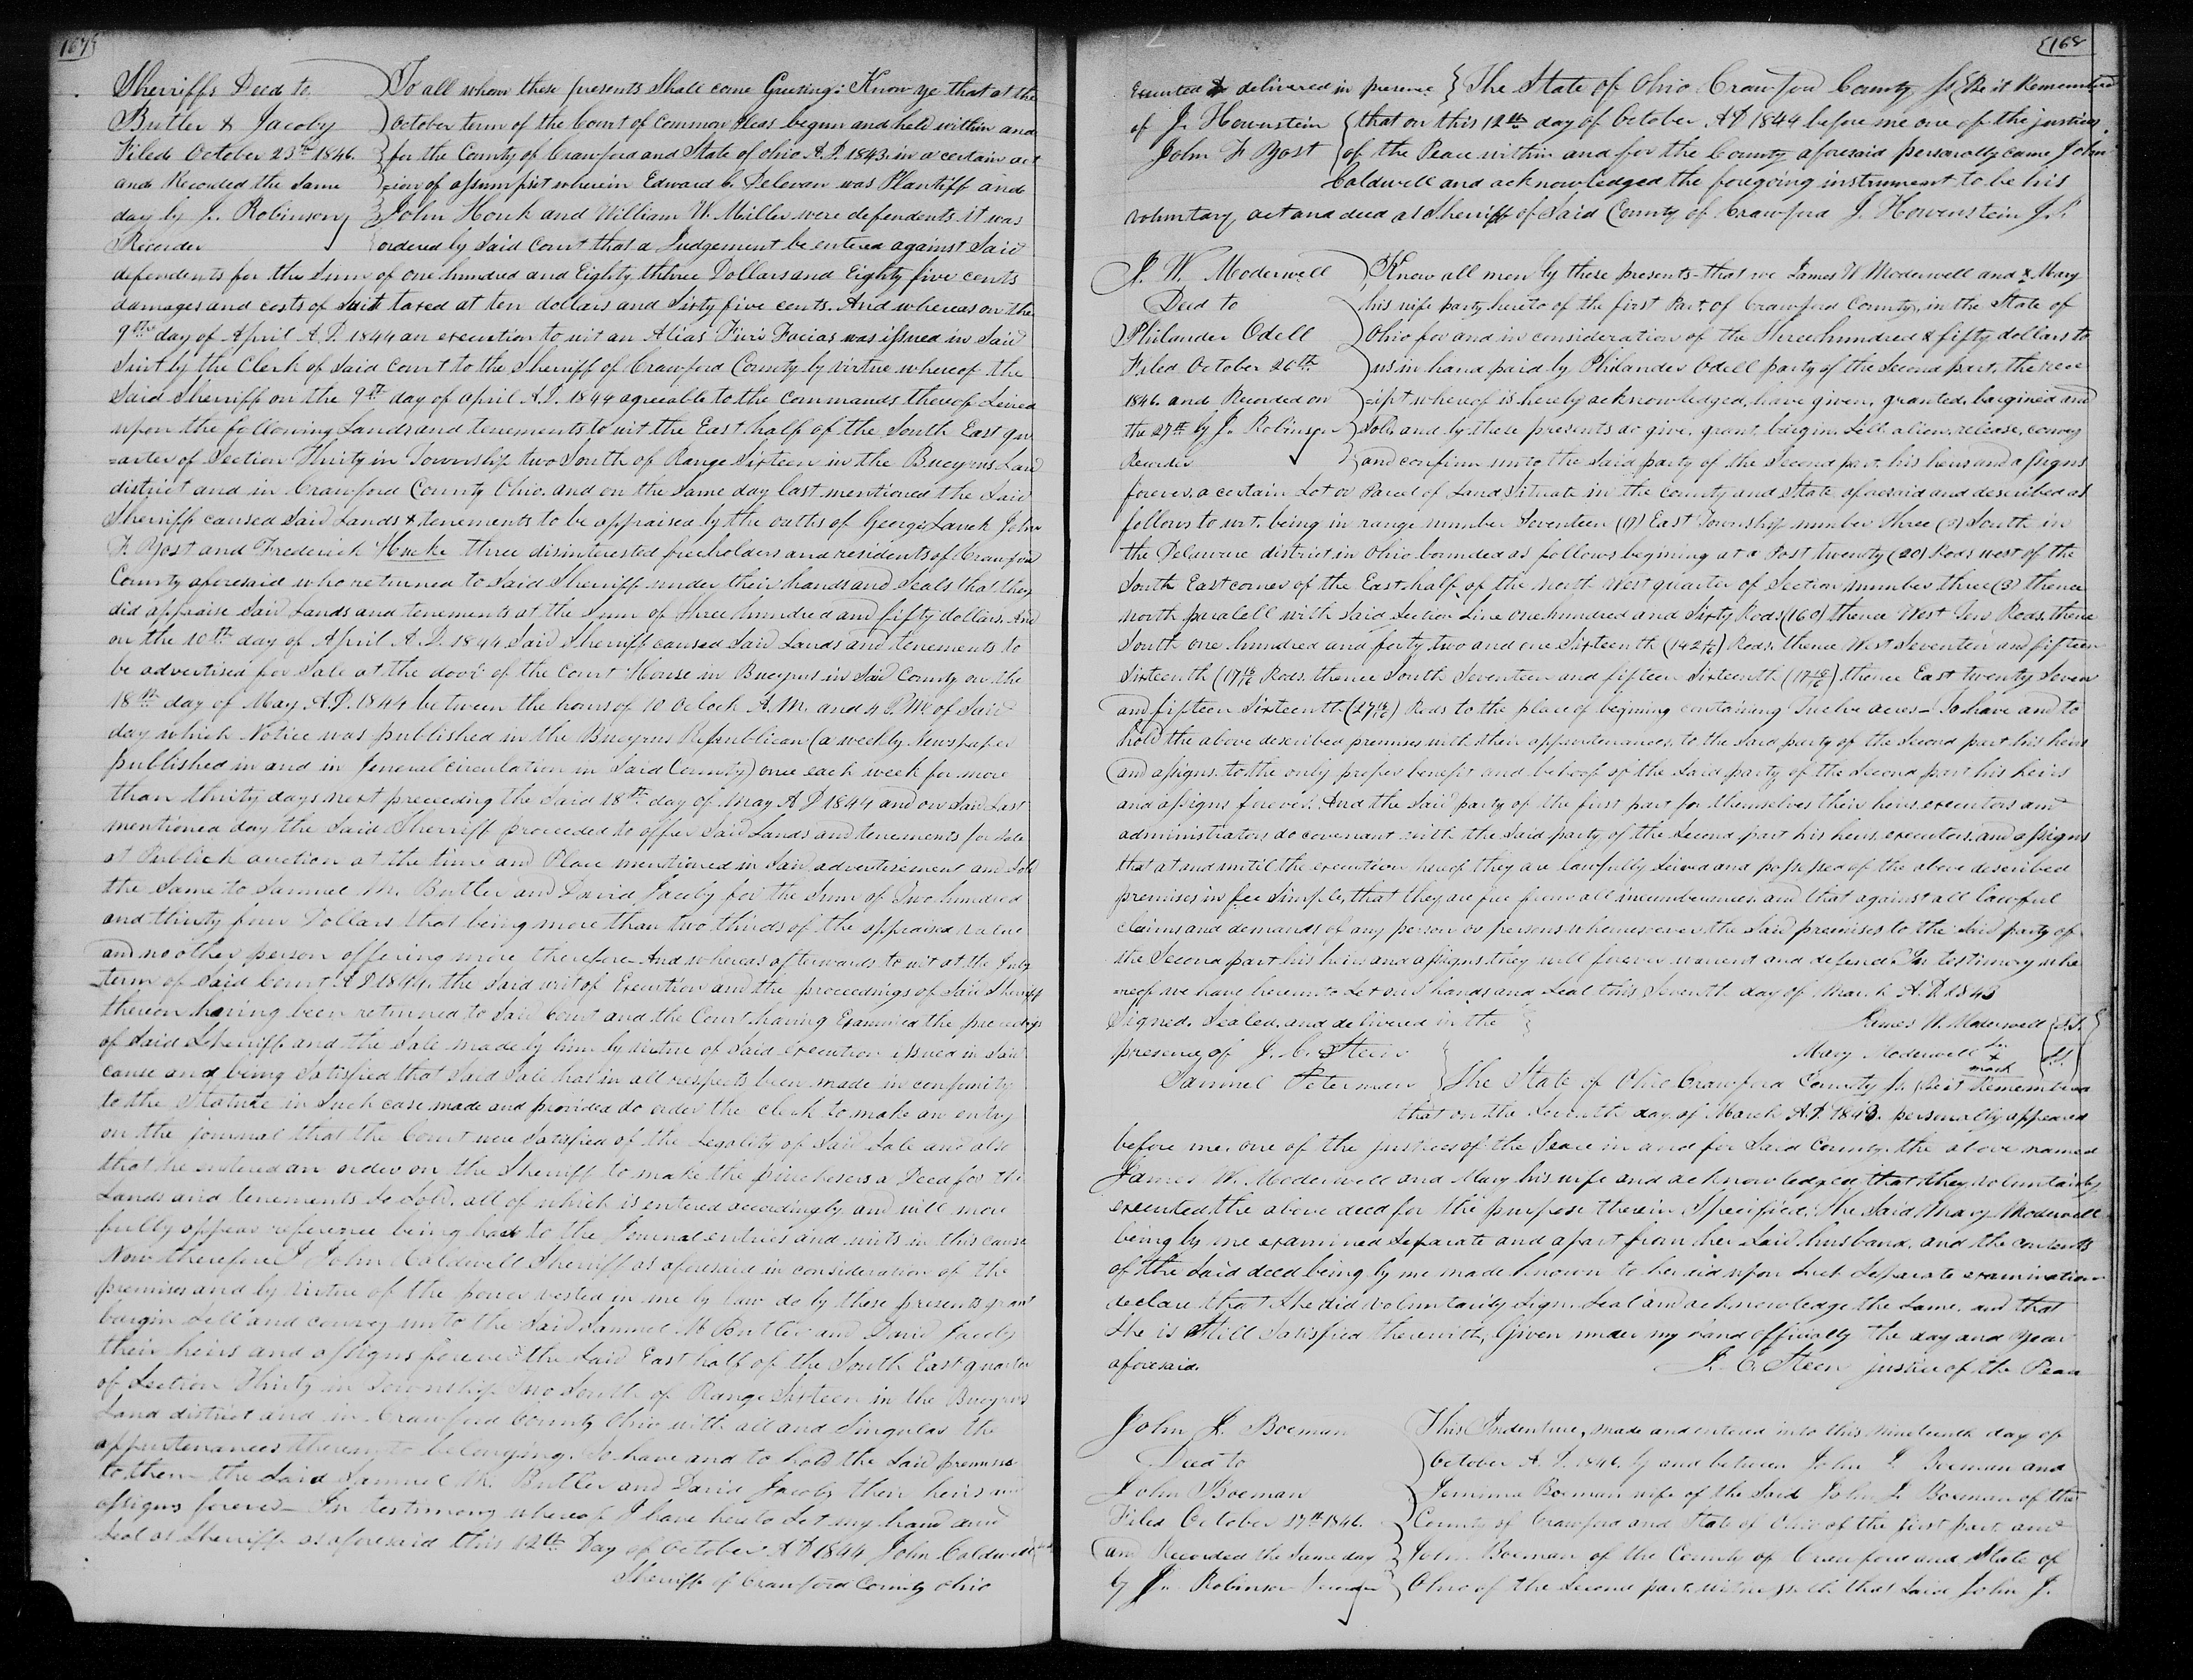 167
Sherriffs Deed to
Butler & Jacoby
Filed October 23rd 1846.
and Recorded the Same
day by J. Robinson
Recorder
To all whom these presents Shall come Greeting: Know ye that at the
October term of the Court of Common Pleas begun and held within and
for the County of Crawford and State of ohio A.D. 1843. in a certain act
=ion of assumpsit wherein Edward C. Delevan was Plantiff and
John Honk and William W. Miller were defendents it was
ordered by Said Court that a Judgement be entered against Said
defendents for the Sum of one hundred and Eighty ththree Dollars and Eighty five cents
damages and costs of Suit taxed at ten dollars and Sixty five cents. And whereas on the
9th day of April A.D. 1844 an execution to wit an Alias Fieri Facias was issued in Said
Suit by the Clerk of Said Court to the Sherriff of Crawford County by virtue whereof the
Said Sherriff on the 9th day of april A.D. 1844 agreeable to the commands thereof Leived
upon the following Lands and tenements to wit the East half of the South East qu
=arter of Section Thirty in Township two South of Range Sixteen in the Bucyrus Land
district and in Crawford County Ohio. and on the Same day last mentioned the Said
Sherriff caused Said Lands & tenements to be appraised by the oaths of George Lauck John
F. Yost and Frederick Hucke three disinterested freeholders and residents of Crawford
County aforesaid who returned to Said Sherriff under their hands and Seals that they
did appraise Said Lands and tenements at the Sum of three hundred and fifty dollars. And
on the 10th day of April A.D. 1844 Said Sherriff caused Said Lands and tenements to
be advertised for Sale at the door of the Court House in Bucyrus in Said County on the
18th day of May A.D. 1844 between the hours of 10 Oclock A.M. and 4 P.M. of Said
day which Notice was published in the Bucyrus Republican (a weekly Newspaper
published in and in general circulation in Said County) once each week for more
than thirty days next preceeding the Said 18th day of May A D 1844 and on Said Last
mentioned day the Said Sherriff proceeded to offer Said Lands and tenements for Sale
at Publick auction at the time and Place mentioned in Said advertisement and Sold
the Same to Samuel M. Butler and David Jacoby for the Sum of Two hundred
and thirty four Dollars that being more than two thirds of the appraised value
and no other person offering more therefore. And whereas afterwards to wit at the July
term of Said Court A.D. 1844. the Said writ of Execution and the proceedings of Said Sherriff
thereon having been returned to Said Court and the Court having Examined the proceedings
of Said Sherriff and the Sale made by him by virtue of Said execution issued in Said
cause and being Satisfied that Said Sale had in all respects been made in confimity
to the Statute in Such case made and provided do order the clerk to make an entry
on the journal that the Court were Satisfied of the Legality of Said Sale and also
that he entered an order on the Sherriff to make the purchesers a Deed for the
Lands and tenements So Sold. all of which is entered accordingly and will more
fully appear reference being had to the Journal entries and writs in this cause
Now therefore I John Caldwell Sherriff as aforesaid in consideration of the
premises and by virtue of the power vested in me by law do by these presents grant
bargin Sell and convey unto the Said Samuel M Butler and David Jacoby
their heirs and assigns forever the Said East half of the South East quarter
of Section Thirty in Township Two South of Range Sixteen in the Bucyrus
Land district and in Crawford County Ohio with all and Singular the
appurtenances thereunto belonging. To have and to hold the Said premises
to them the Said Samuel M. Butler and David Jacoby their heirs and
assigns forever - In testimony whereof I have hereto Set my hand and
Seal as Sherriff as aforesaid this 12th Day of October A D 1844 John Caldwell
Sherriff of Crawford County Ohio
168
Executed & delivered in presence
of J. Howenstein
John F Yost
The State of Ohio Crawford County ss Be it Remembered
that on this 12th day of October A D 1844 before me one of the justices
of the Peace within and for the County aforesaid personally came John
Caldwell and acknowledged the foregoing instrument to be his
voluntary act and deed as Sherriff of Said County of Crawford J. Howenstein J.P.
J. W. Moderwell
Deed to
Philander Odell
Filed October 26th
1846. and Recorded on
the 27th by J. Robinson
Recorder
Know all men by these presents that we James W Moderwell and Mary
his wife party hereto of the first Part of Crawford County, in the State of
Ohio for and in consideration of the Three hundred & fifty dollars to
us in hand paid by Philander Odell party of the Second part, the rece
=ipt whereof is hereby acknowledged, have given, granted, bargined and
Sold, and by these presents do give, grant, bargin, Sell, alien, release, convey
and confirm unto the Said party of the Second part, his heirs and assigns
forever, a certain Lot or Parcel of Land Situate in the County and State aforesaid and described as
follows to wit, being in range number Seventeen (17) East Township number three (3) South in
the Delaware district in Ohio bounded as follows begining at a Post twenty (20) Rods west of the
South East corner of the East half of the North West quarter of Section number three (3) thence
North paralell with Said Section Line one hundred and Sixty Rods (160) thence West Ten Rods, thence
South one hundred and forty two and one Sixteenth (142 1/16) Rods, thence West Seventeen and fifteen
Sixteenth (17 15/16 Rods. thence South Seventeen and fifteen Sixteenth (17 15/16), thence East twenty Seven
and fifteen Sixteenth (27 15/16) Rods to the place of begining containing Twelve acres - To have and to
hold the above described premises with their appurtenances, to the Said party of the Second part his heirs
and assigns. to the only proper benefit and behoof of the Said party of the Second part his heirs
and assigns forever. And the Said party of the first part for themselves their heirs executors and
administrators do covenant with the Said party of the Second part his heirs, executors, and assigns
that at and until the execution hereof they are lawfully Seived and possessed of the above described
premises in fee Simple, that they are free from all incumberances. and that against all lawful
claims and demands of any person or persons whomesever the Said premises to the Said party of
the Second part his heirs and assigns they will forever warrent and defend. In testimony whe
=reof we have hereunto Set our hands and Seal this Seventh day of March A.D. 1843
Signed, Sealed, and delivered in the
presence of J. C. Steen
Samuel Peterman
James W. Moderwell L.S.
Mary Moderwell her x mark L.S.
The State of Ohio Crawford County ss Be it Remembered
that on the Seventh day of March A.D. 1843. personally appeared
before me, one of the justices of the Peace in and for Said County, the above named
James W. Moderwell and Mary his wife and acknowledged that they voluntairly
executed the above deed for the purpose therein Specified, the Said Mary Moderwell
being by me examined Separate and apart from her Said husband, and the contents
of the Said deed being by me made known to her did upon Such Separate examination
declare that She did voluntarily Sign, Seal and acknowledge the Same, and that
She is Still Satisfied therewith, Given under my hand officially the day and year
aforesaid.
J. C. Steen justice of the Peace
John J. Boeman
Deed to
John Boeman
Filed October 27th 1846.
and Recorded the Same day
by J. Robinson Recorder
This Indenture, made and entered into this nineteenth day of
October A. D. 1846. by and between John J. Boeman and
Jemima Boeman wife of the Said John J. Boeman of the
County of Crawford and State of Ohio of the first part, and
John Boeman of the County of Crawford and State of
Ohio of the Second part, witnesseth that Said John J.